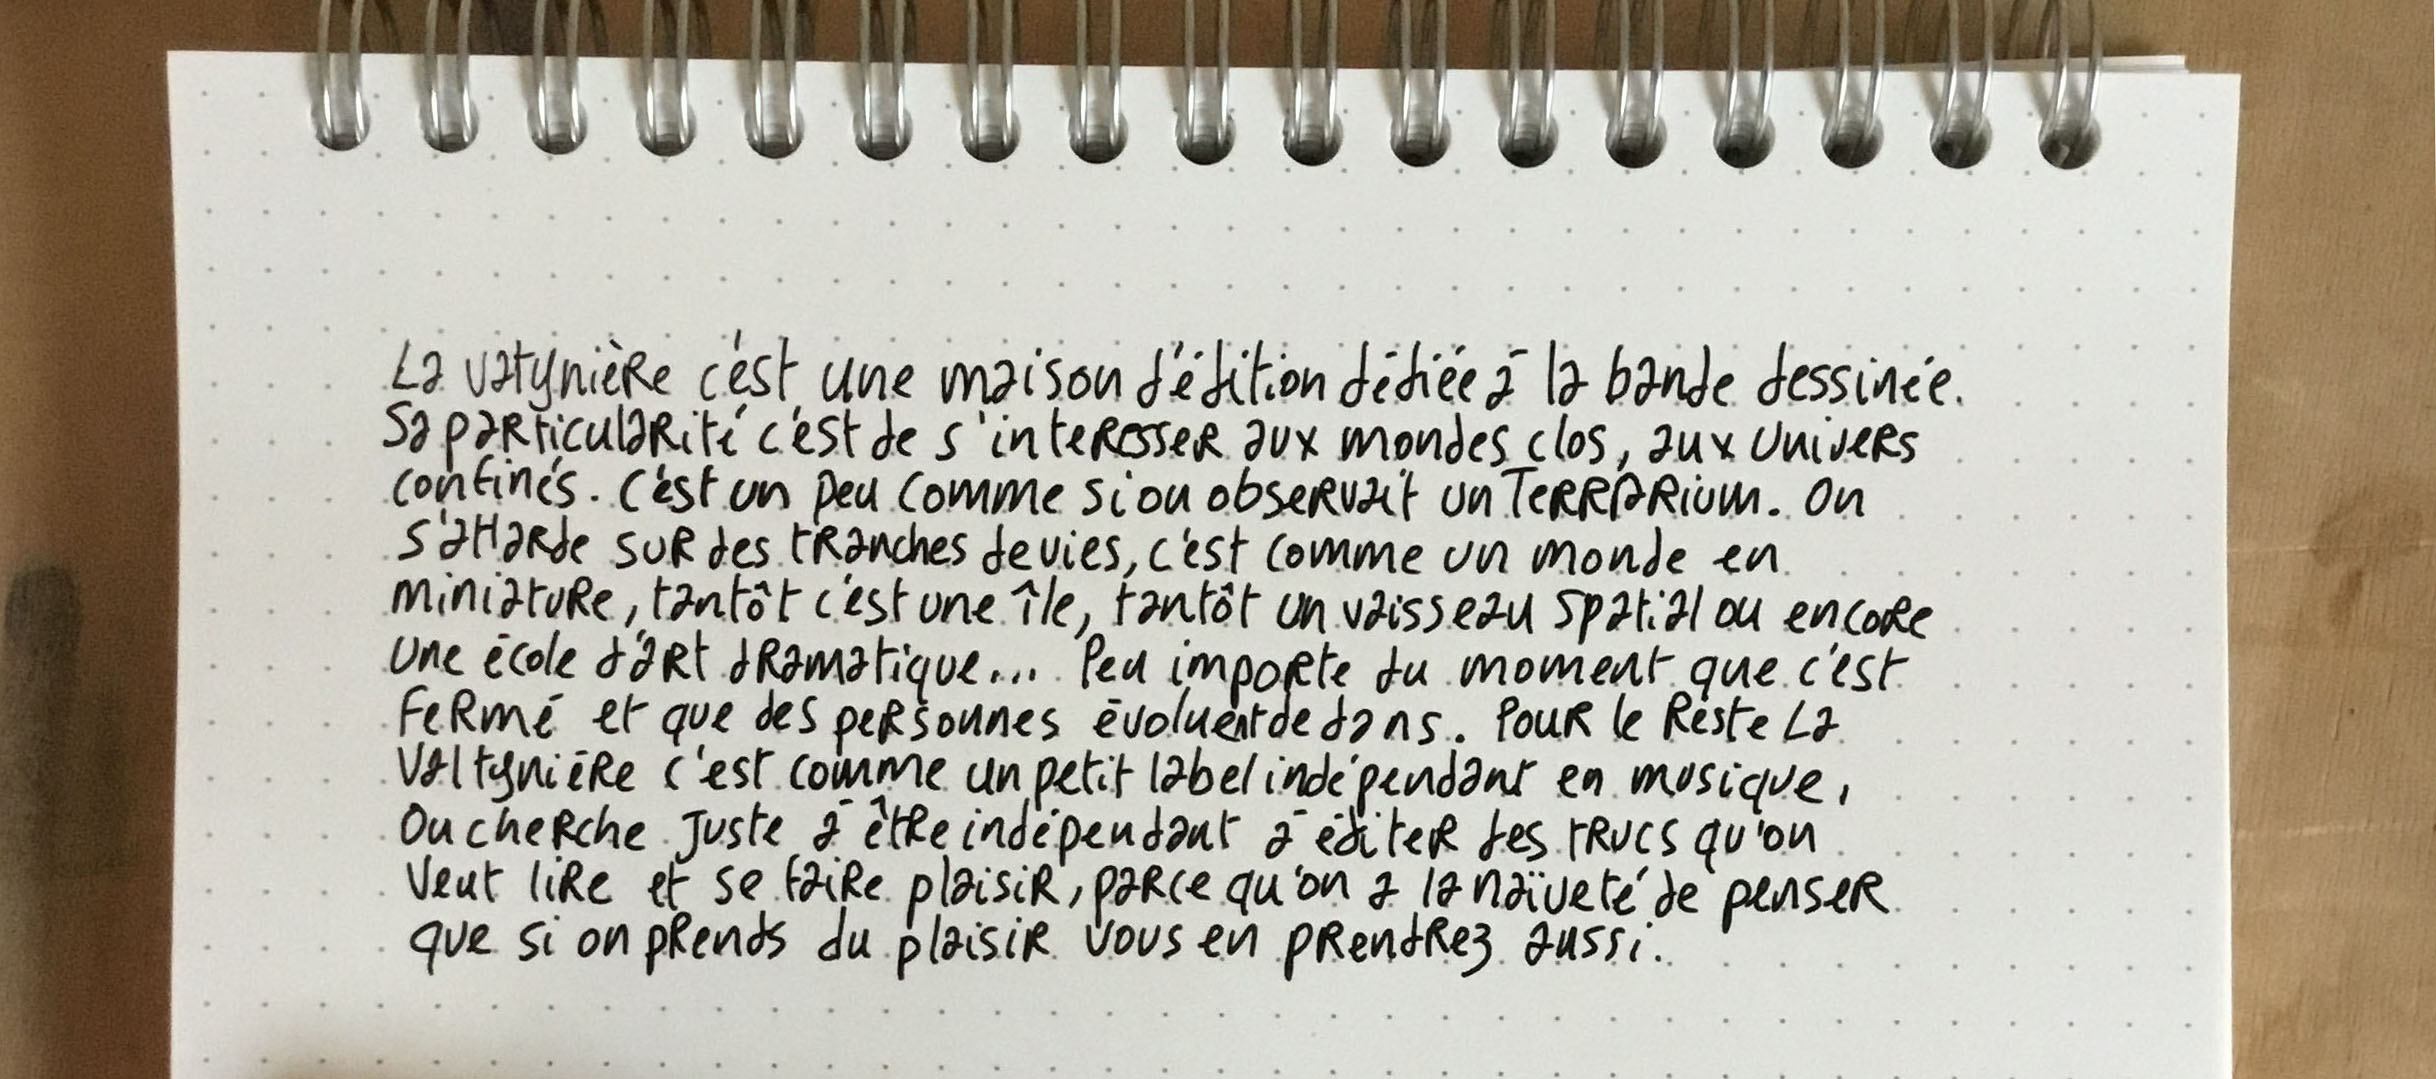 La vatynière c'est une maison d'édition dédiée à la bande dessinée.
Sa particularité c'est de s'interesser aux mondes clos, aux univers
confinés. C'est un peu comme si on observait un Terrarium. On
s'attarde sur des tranches de vies, c'est comme un monde en
miniature, tantôt c'est une île, tantôt un vaisseau spatial ou encore
une école d'art dramatique... Peu importe du moment que c'est
fermé et que des personnes évoluent dedans. Pour le reste La
Valtynière c'est comme un petit label indépendant en musique,
On cherche juste à être indépendant à éditer des trucs qu'on
veut lire et se faire plaisir, parce qu'on a la naïveté de penser
que si on prends du plaisir vous en prendrez aussi.